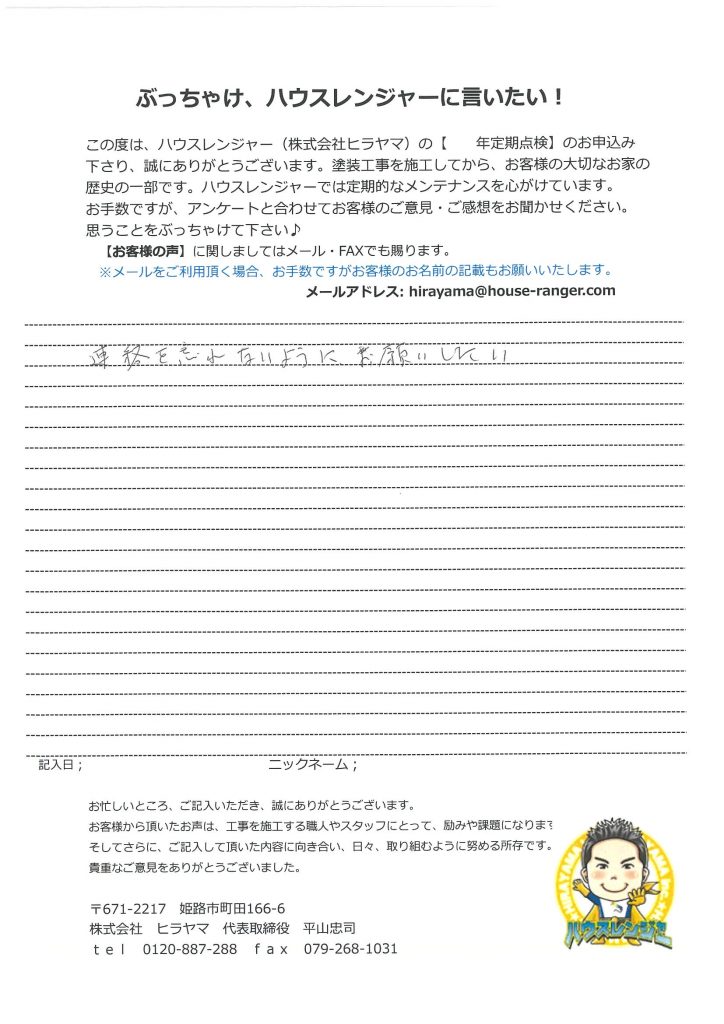 ぶっちゃけ、ハウスレンジャーに言いたい！
この度は、ハウスレンジャー（株式会社ヒラヤマ）の【　　年定期点検】のお申込み
下さり、誠にありがとうございます。塗装工事を施工してから、お客様の大切なお家の
歴史の一部です。ハウスレンジャーでは定期的なメンテナンスを心がけています。
お手数ですが、アンケートと合わせてお客様のご意見・ご感想をお聞かせください。
思うことをぶっちゃけて下さい♪
【お客様の声】に関しましてはメール・FAXでも賜ります。
※メールをご利用頂く場合、お手数ですがお客様のお名前の記載もお願いいたします。
メールアドレス: hirayama@house-ranger.com
連絡を忘れないようにお願いしたい
記入日；　ニックネーム；
お忙しいところ、ご記入いただき、誠にありがとうございます。
お客様から頂いたお声は、工事を施工する職人やスタッフにとって、励みや課題になります
そしてさらに、ご記入して頂いた内容に向き合い、日々、取り組むように努める所存です。
貴重なご意見をありがとうございました。
〒671-2217　姫路市町田166-6
株式会社　ヒラヤマ　代表取締役　平山忠司
ｔｅｌ　0120-887-288　ｆａｘ　079-268-1031
ハウスレンジャー